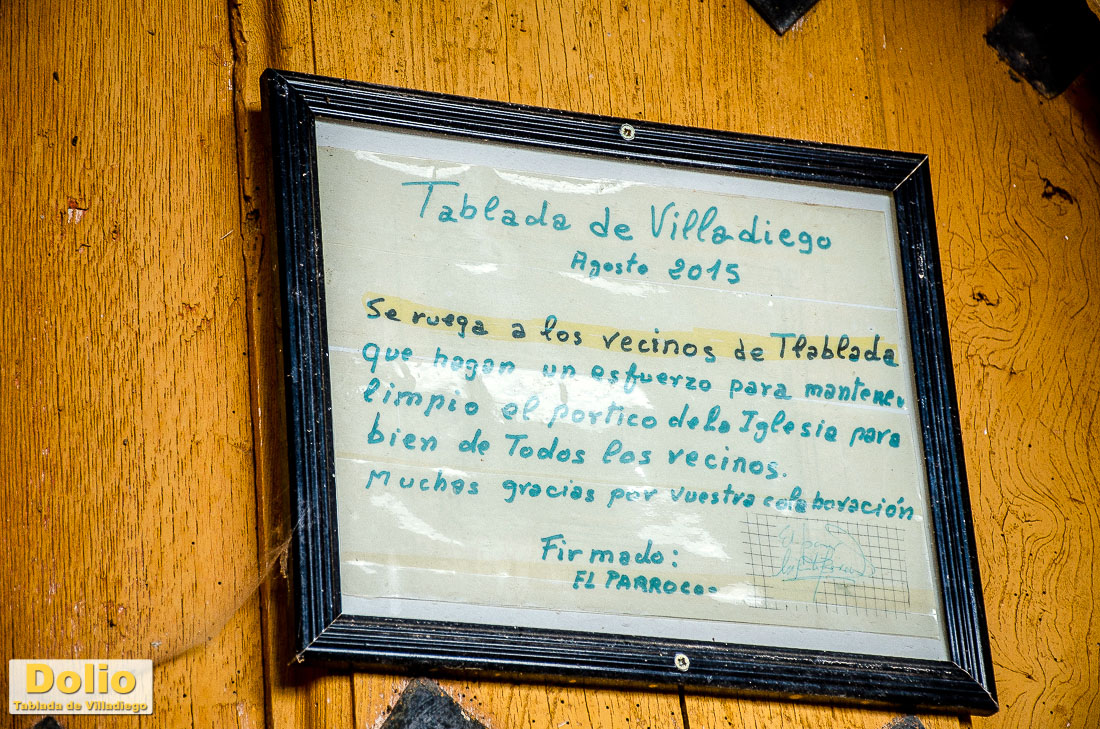 Tablada de Villadiego
Agosto 2015
Se ruega a los vecinos de Tlablada
que hagan un esfuerzo para mantener
limpio el portico de la Iglesia para
bien de Todos los vecinos.
Muchas gracias por vuestra colaboración
Firmado:
EL PARROCO
Dolio
Tablada de Villadiego